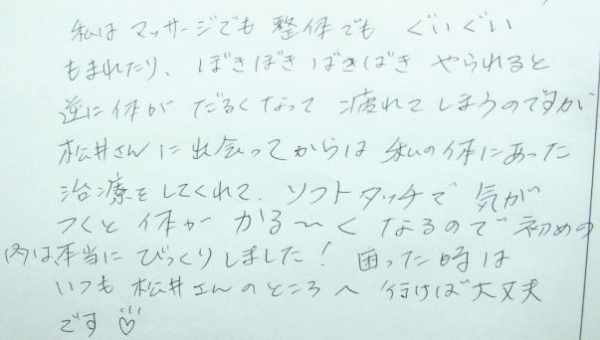 私はマッサージでも整体でもぐいぐい
もまれたり、ぼきぼきばきばきやられると
逆に体がだるくなって疲れてしまうのですが
松井さんに出会ってからは私の体にあった
治療をしてくれて、ソフトタッチで気が
つくと体がかる〜くなるので初めの
内は本当にびっくりしました!困った時は
いつも松井さんのところへ行けば大丈夫
です♡